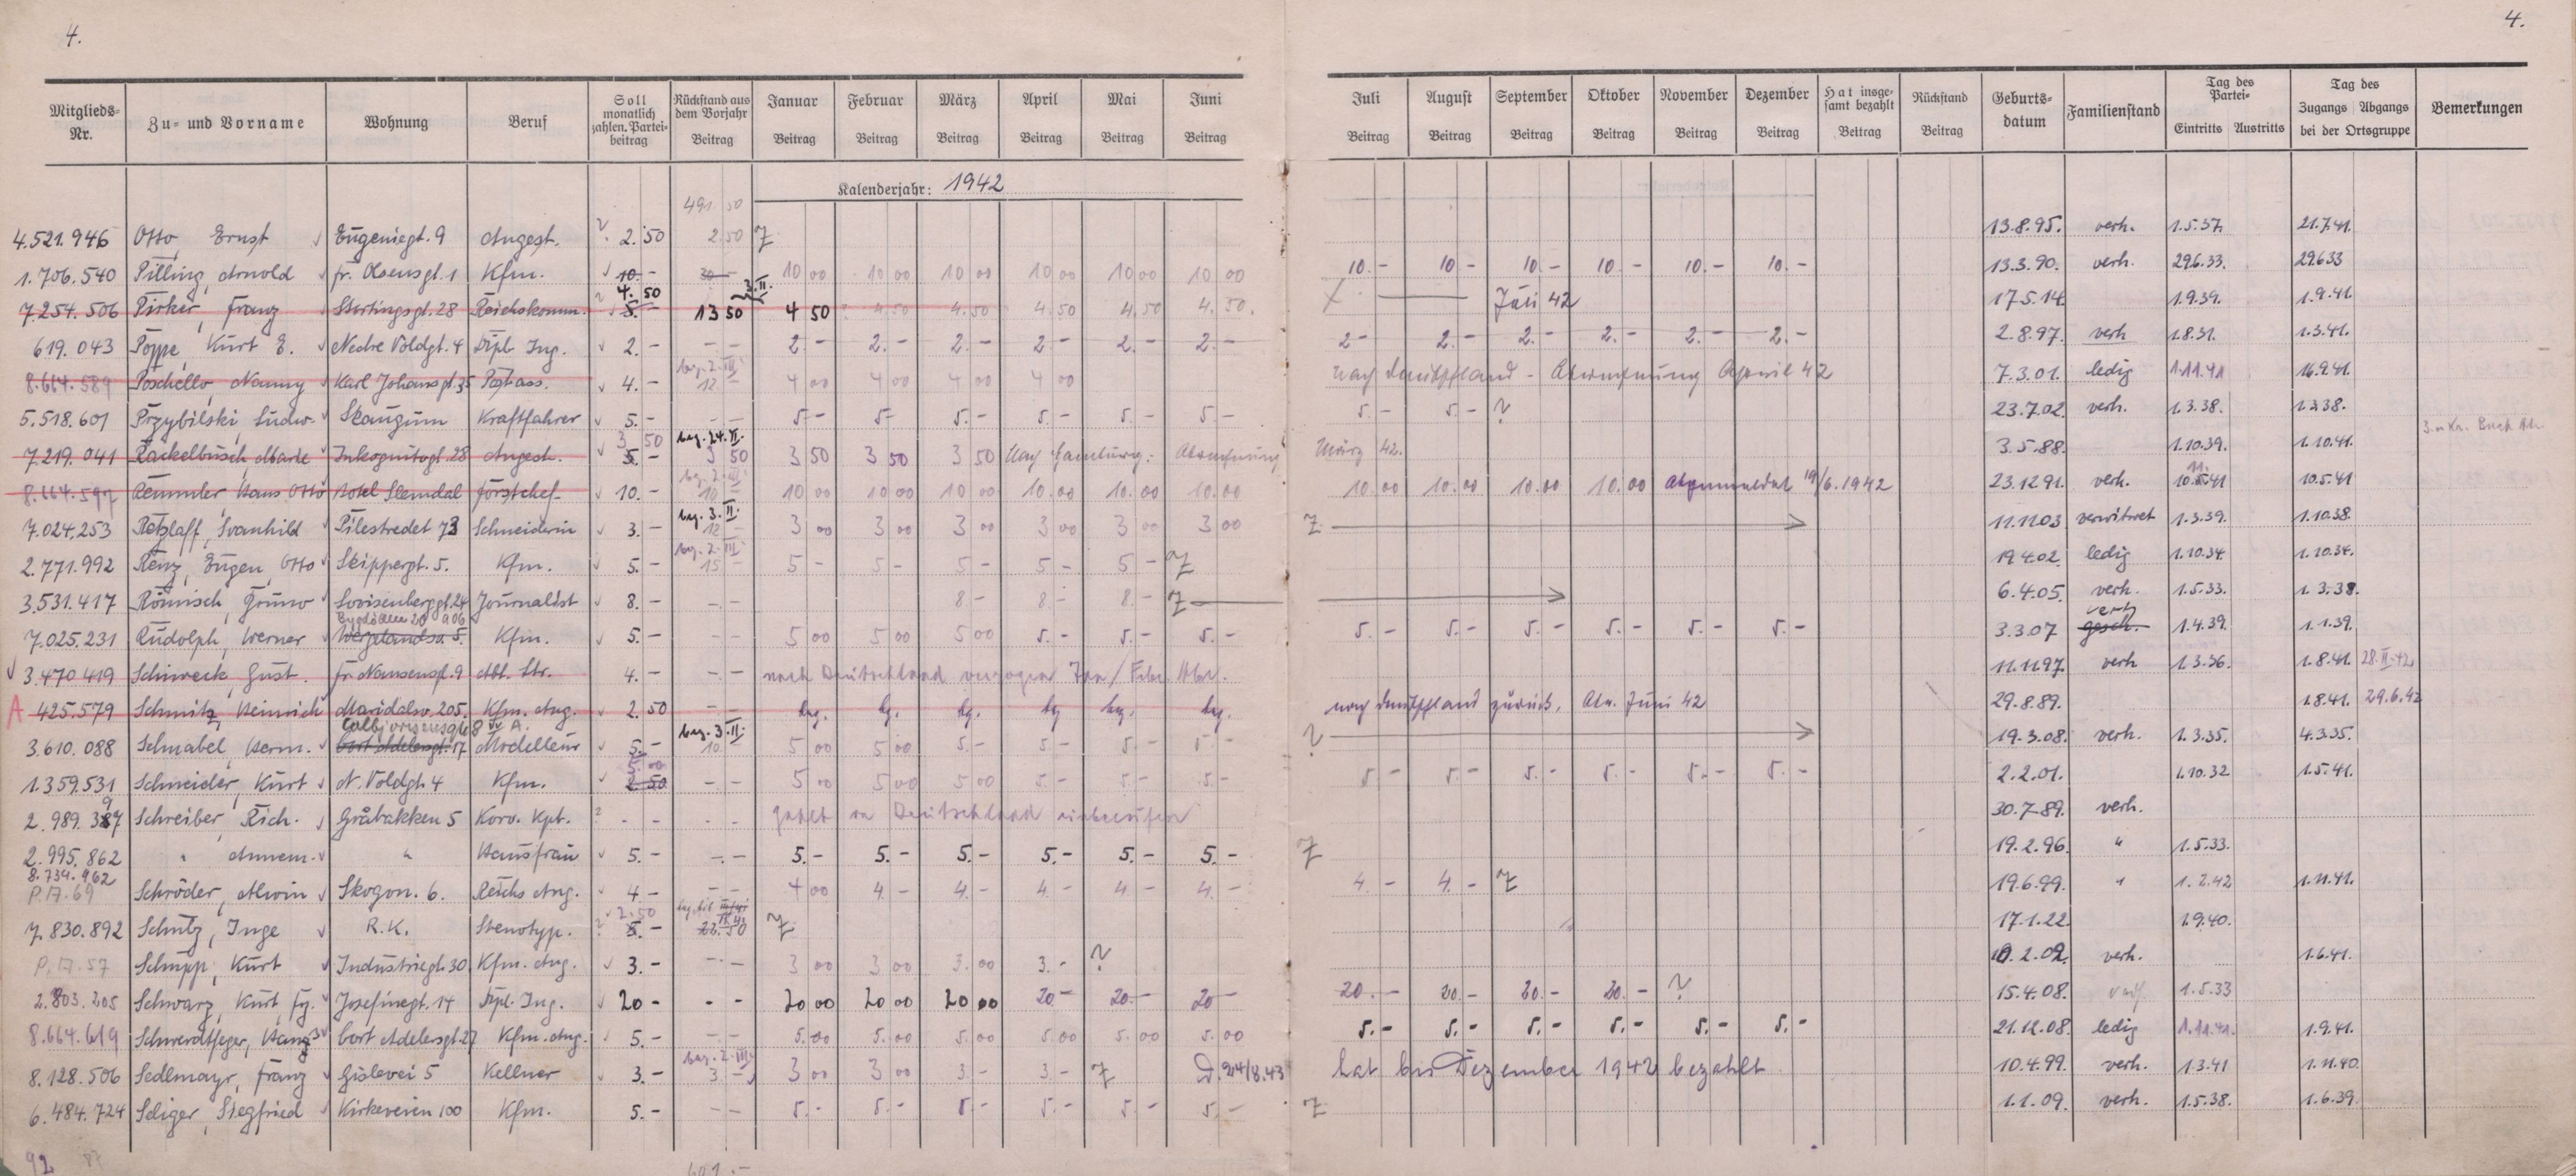 4.
4.
Mitglieds-Nr. Zu- und Vorname Wohnung Beruf Soll monatlich zahlen. Partei-beitrag Rückstand aus dem Vorjahr Beitrag Januar Beitrag Februar Beitrag März Beitrag April Beitrag Mai Beitrag Juni Beitrag Juli Beitrag August Beitrag September Beitrag Oktober Beitrag November Beitrag Dezember Beitrag Hat insge-samt bezahlt Beitrag Rückstand Beitrag Geburts-datum Familienstand Tag des Partei- Eintritts Austritts Tag des Zugangs Abgangs bei der Ortsgruppe Bemerkungen
Kalenderjahr: 1942
491 50
4.521.946 Otto, Ernst Eugeniegt. 9 Angest. 2.50 2.50 13.8.95. verh. 1.5.37. 21.7.41.
1.706.540 Pilling, Arnold fr. Olsensgt. 1 Kfm. 10.- 10 00 10 00 10 00 10 00 10 00 10 00 10.- 10.- 10.- 10.- 10.- 10.- 13.3.90. verh. 29.6.33. 29.6.33
7.254.506 Pirker, Franz Stortingsgt. 28 Reichskomm. 4.50 5.- 3.II. 13 50 4 50 4.50 4.50 4.50 4.50 4.50. Juni 42 17.5.14. 1.9.39. 1.9.41.
619.043 Poppe, Kurt E. Nedre Voldgt. 4 Dipl. Ing. 2.- -.- 2.- 2.- 2.- 2.- 2.- 2.- 2.- 2.- 2.- 2.- 2.- 2.- 2.8.97. verh 1.8.31. 1.3.41.
8.664.589 Poschello, Nanny Karl Johansgt. 35 4.- bez. 2.III. 12 - 4 00 4 00 4 00 4 00 nach Deutschland - Abmeldung April 42 7.3.01. ledig 1.11.41 16.9.41.
5.518.601 Przybilski, Ludw. Skaugum Kraftfahrer 5.- -.- 5.- 5.- 5.- 5.- 5.- 5.- 5.- 5.- ? 23.7.02. verh. 1.3.38. 1.3.38.
7.219.041 Rackelbusch, Marie Inkognitogt. 28 Angest. 3 50 5.- bez. 24.II. 3 50 3 50 3 50 3 50 Nach Hamburg: Abmeldung März 42. 3.5.88. 1.10.39. 1.10.41.
8.664.597 Remmler, Hans Otto Hotel Slemdal Forstchef 10.- bez. 2.III. 10 - 10 00 10 00 10 00 10.00 10.00 10.00 10.00 10.00 10.00 10.00 abgemeldet 19/6.1942 23.12.91. verh. 10.5.41
7.024.253 Retzlaff, Svanhild Pilestredet 73 Schneiderin 3.- bez. 3.II. 12 - 3 00 3 00 3 00 3 00 3 00 3 00 11.11.03 verwitwet 1.3.39. 1.10.38.
2.771.992 Renz, Eugen, Otto Skippergt. 5. Kfm. 5.- bez. 2.III. 15 - 5 - 5 - 5 - 5 - 5 - 19.4.02. ledig 1.10.34. 1.10.34.
3.531.417 Römisch, Bruno Lovisenberggt. 24 Journalist 8.- -.- 8 - 8.- 8.- 6.4.05. verh. 1.5.33. 1.3.38.
7.025.231 Rudolph, Werner Kfm. 5.- -.- 5 00 5 00 5 00 5.- 5.- 5.- 5.- 5.- 5.- 5.- 5.- 5.- 3.3.07 verh gesch. 1.4.39. 1.1.39.
3.470.419 Schiweck, Gust. fr. Nansenspl. 9 Abt. Ltr. 4.- -.- nach Deutschland verzogen Jan/Febr. 11.11.97. verh 1.3.36. 1.8.41. 28.II.42
A 425.579 Schmitz, Heinrich Maridalsv. 205. Kfm. Ang. 2.50 -- bez. bez. bez. bez. bez. bez. nach Deutschland zurück. Juni 42 29.8.89. 1.8.41. 29.6.42
3.610.088 Schnabel, Herm. Cort Adelersgt. 17 Modelleur 5.- bez. 3.II. 10. 5 00 5 00 5.- 5.- 5.- 5.- ? 19.3.08. verh. 1.3.35. 4.3.35.
1.359.531 Schneider, Kurt N. Voldgt. 4 Kfm. 5.00 2.50 -- 5 00 5 00 5 00 5.- 5.- 5.- 5.- 5.- 5.- 5.- 5.- 5.- 2.2.01. 1.10.32 1.5.41.
2.989.397 Schreiber, Rich. Gråbakken 5 Korv. Kpt. ? - - - - in Deutschland 30.7.89. verh.
2.995.862 " Annem. " Hausfrau 5.- -.- 5.- 5.- 5.- 5.- 5.- 5.- 19.2.96. " 1.5.33.
8.734.962 P.17.69 Schröder, Alwin Skogvn. 6. Reichs Ang. 4 - -- 4 00 4.- 4.- 4.- 4.- 4.- 4.- 4.- 19.6.99. " 1.2.42 1.11.41.
7.830.892 Schulz, Inge R.K. Stenotyp. 2.50 5.- 22.50 17.1.22. 1.9.40.
P.17.57 Schupp, Kurt Industriegt. 30 Kfm. Ang. 3.- -.- 3 00 3 00 3.00 3.- ? .2.02. verh. 1.6.41.
2.803.205 Schwarz, Kurt, Josefinegt. 14 Dipl. Ing. 20 - - - 20 00 20 00 20 00 20.- 20.- 20.- 20.- 20.- 20.- 20.- ? 15.4.08. 1.5.33
8.664.619 Schwerdtfeger, Hans Cort Adelersgt. 27 Kfm. Ang. 5.- -.- 5.00 5.00 5.00 5.00 5.00 5.00 5.- 5.- 5.- 5.- 5.- 5.- 21.12.08. ledig 1.11.41. 1.9.41.
8.128.506 Sedlmayr, Franz Gislevei 5 Kellner 3.- bez. 2.III. 3.- 3 00 3 00 3.- 3.- D. 24/8.43 hat bis Dezember 1942 bezahlt 10.4.99. verh. 1.3.41 1.11.40.
6.484.724 Seliger, Siegfried Kirkeveien 100 Kfm. 5.- -- 5.- 5.- 5.- 5.- 5.- 5.- 1.1.09. verh. 1.5.38. 1.6.39.
92